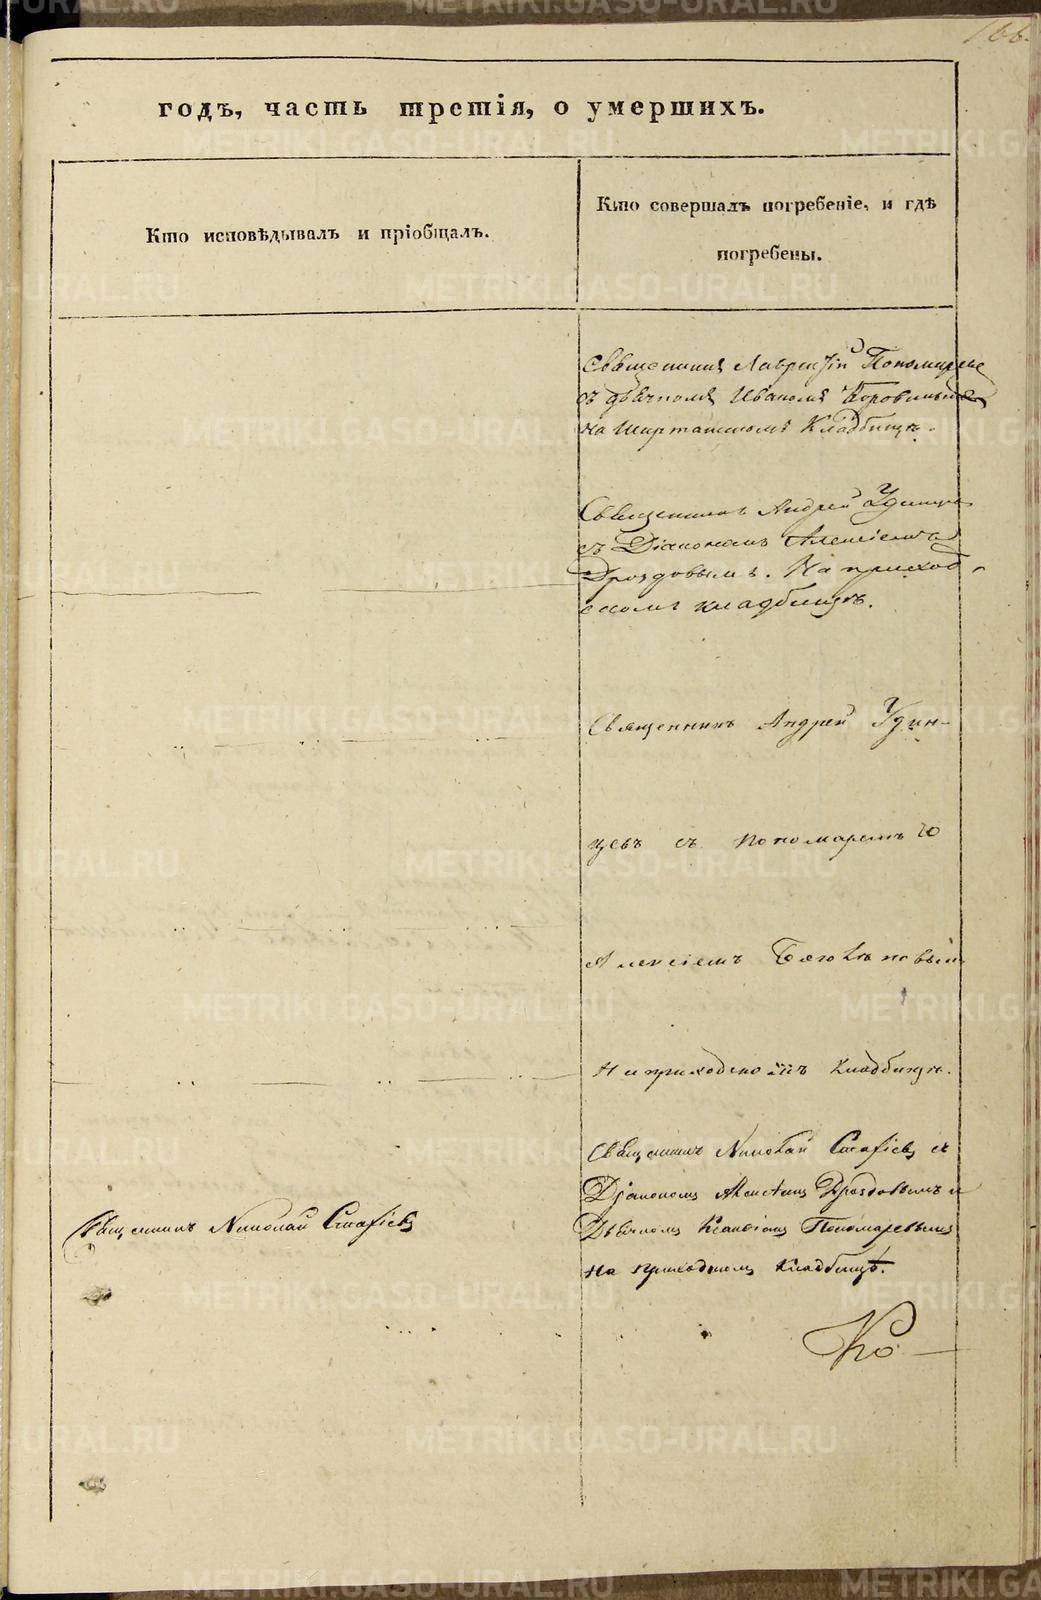 166.
годъ, часть третія, о умершихъ.
Кто исповѣдывалъ и пріобщалъ.
Кто совершалъ погребеніе, и гдѣ
погребены.
Священникъ Лаврентій Пономаревъ
съ дьячкомъ Иваномъ
на Шарташскомъ Кладбищѣ.
Священникъ Андрей Удинцевъ
съ Діакономъ Алексіемъ
Дроздовымъ. На приход-
скомъ кладбищѣ.
Священникъ Андрей Удин-
цевъ съ пономаремъ
Алексіемъ
На приходскомъ Кладбищѣ.
Священникъ Николай Стафіевъ съ
Діакономъ Алексѣемъ Дроздовымъ и
Дьячкомъ Пономаревымъ
на приходскомъ Кладбищѣ.
Священникъ Николай Стафіевъ
METRIKI.GASO-URAL.RU